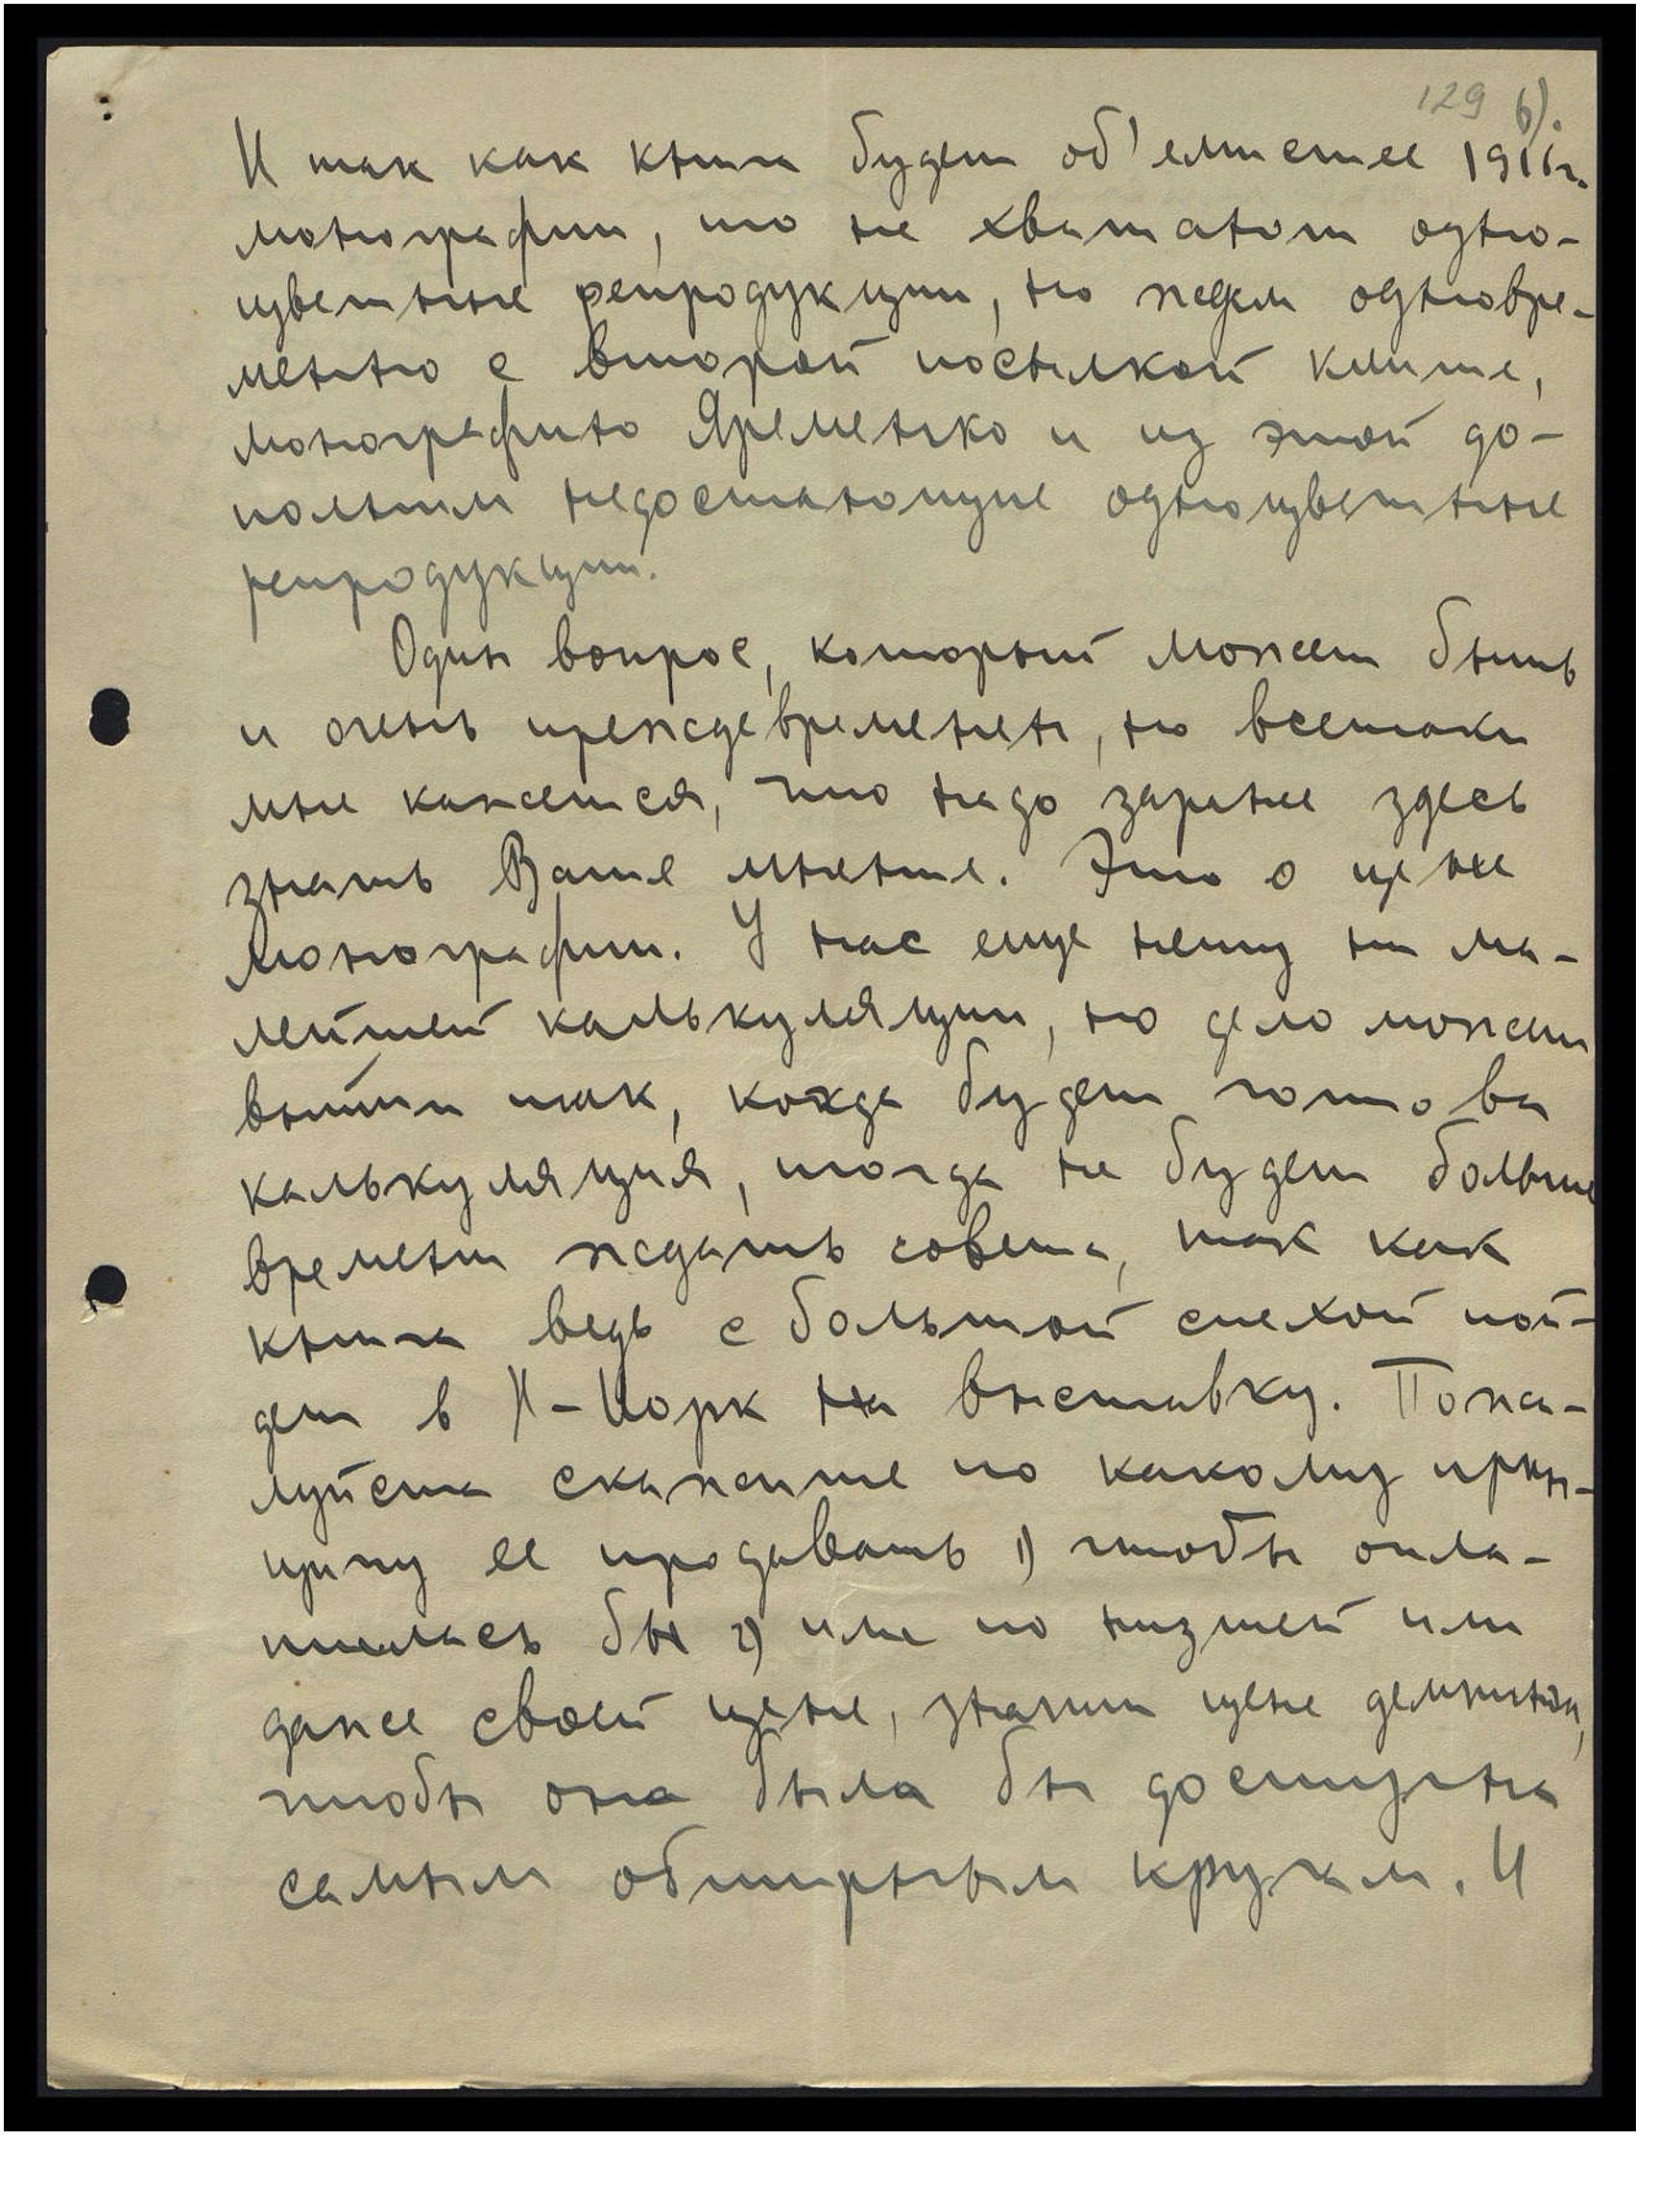 129 6).
И так как книга будет об'емистее 1916г.
монографии, то не хватают одно-
цветные репродукции, но ждем одновре-
менно с второй посылкой клише,
монографию Яременко и из этой до-
полним недостающие одноцветные
репродукции.
Один вопрос, который может быть
и очень преждевременен, но всетаки
мне кажется, что надо заранее здесь
знать Ваше мнение. Это о цене
монографии. У нас еще нету ни ма-
лейшей калькуляции, но дело может
выйти так, когда будет готова
калькуляция, тогда не будет больше
времени ждать совета, так как
книга ведь с большой спехой пой-
дет в Н-Иорк на выставку. Пожа-
луйста скажите по какому прин-
ципу ее продавать 1) чтобы опла-
тилась бы 2) или по низшей или
даже своей цене, значит цене
чтобы она была бы доступна
самым обширным кругам. И